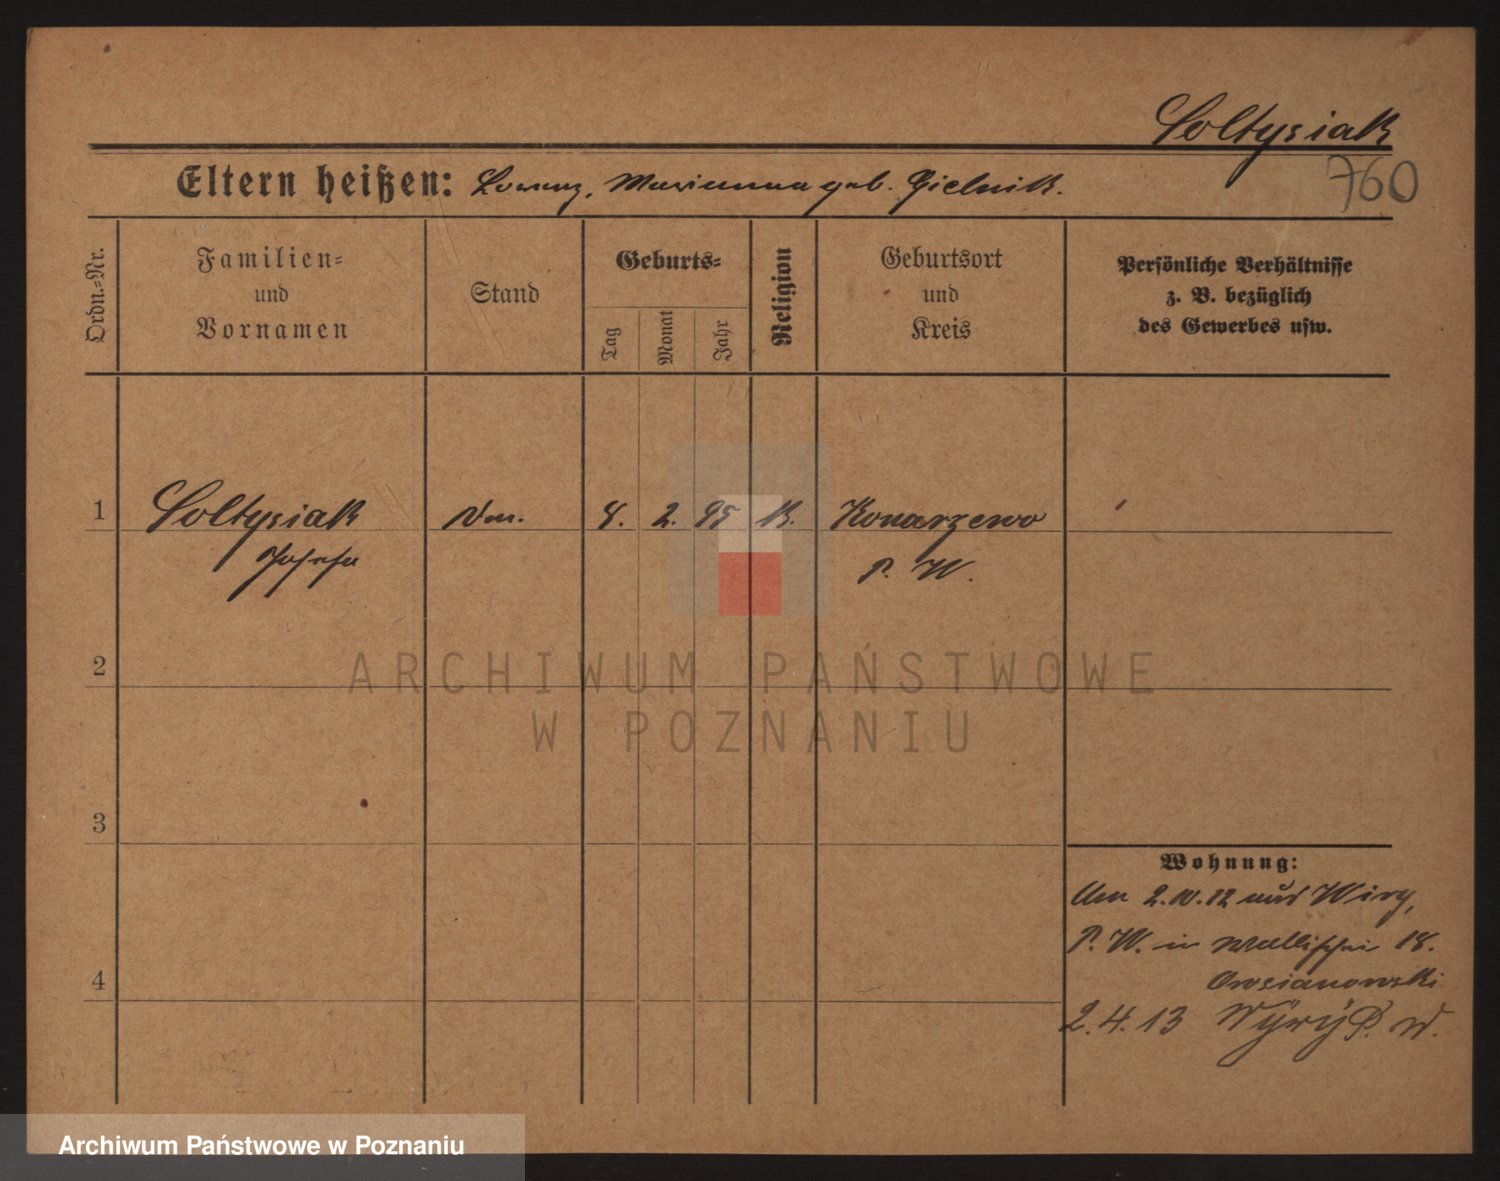 Soltysiak
760
Eltern heißen: Lorenz, Marianna geb. Gielnik.
Ordn.-Nr.
Familien-
und
Vornamen
Stand
Geburts-
Tag
Monat
Jahr
Religion
Geburtsort
und
Kreis
Persönliche Verhältnisse
z. B. bezüglich
des Gewerbes usw.
1 Soltysiak 8. 2. 95 K. Konarzewo
Josefa P. W.
2
3
4
Wohnung:
Am 2.10.12 aus Wiry,
P. W. in Wallischei 18.
Owsianowski
2.4.13 Wÿrÿ P. W.
ARCHIWUM PAŃSTWOWE
W POZNANIU
Archiwum Państwowe w Poznaniu